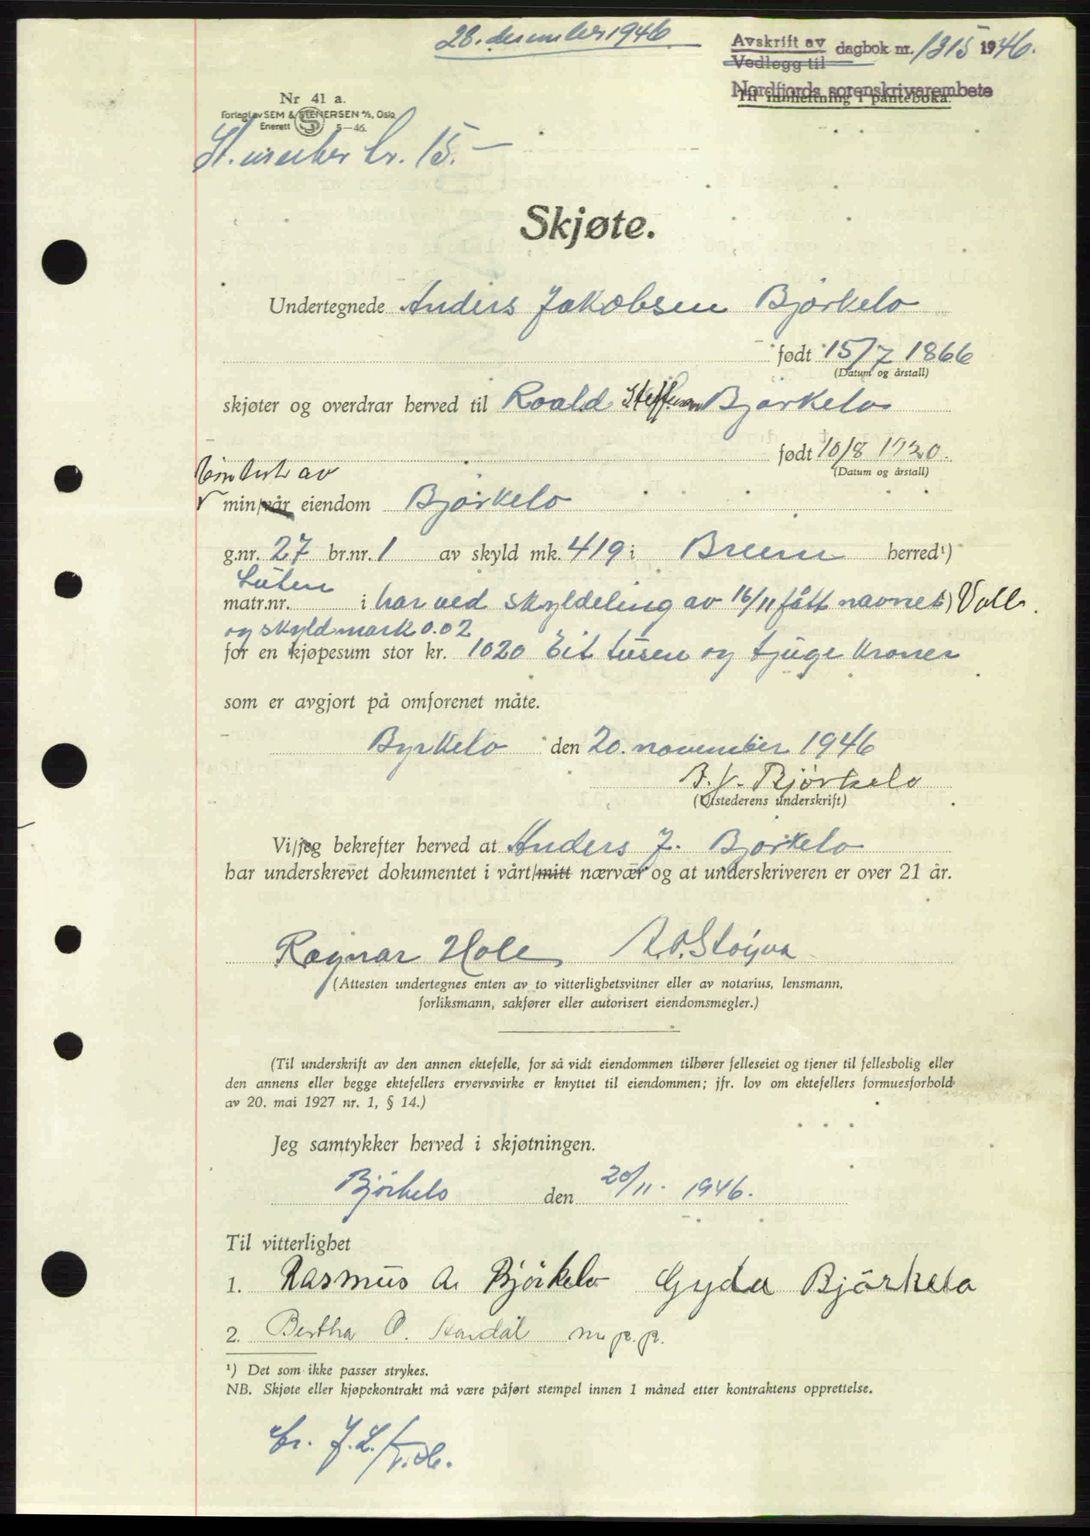 28. desember 1946
Avskrift av dagbok nr. 1315 1946.
Vedlegg til
Nordfjords sorenskrivarembete
Til innheftning i panteboka.
Nr 41 a.
Forlagt av SEM & STENERSEN A/S, Oslo
Enerett S 5-46.
St. merker kr. 15.-
Skjøte.
Undertegnede Anders Jakobsen Bjørkelo
født 15/7 1866
(Datum og årstall)
skjøter og overdrar herved til Roald Steffen Bjørkelo
født 10/8 1920.
(Datum og årstall)
av
min/vår eiendom Bjørkelo
g.nr. 27 br.nr. 1 av skyld mk. 419 i Breim herred¹)
Luten
matr.nr. i har ved skyldeling av 16/11 fått navnet) Voll.
og skyldmark 0.02
for en kjøpesum stor kr. 1020 Eit tusen og tjuge kroner
som er avgjort på omforenet måte.
Byrkelo den 20. november 1946
A. J. Bjørkelo
(Utstederens underskrift)
Vi/jeg bekrefter herved at Anders J. Bjørkelo
har underskrevet dokumentet i vårt/mitt nærvær og at underskriveren er over 21 år.
Ragnar Hole
(Attesten undertegnes enten av to vitterlighetsvitner eller av notarius, lensmann,
forliksmann, sakfører eller autorisert eiendomsmegler.)
(Til underskrift av den annen ektefelle, for så vidt eiendommen tilhører felleseiet og tjener til fellesbolig eller
den annens eller begge ektefellers ervervsvirke er knyttet til eiendommen; jfr. lov om ektefellers formuesforhold
av 20. mai 1927 nr. 1, § 14.)
Jeg samtykker herved i skjøtningen.
Bjørkelo den 20/11. 1946.
Til vitterlighet
1. Rasmus A. Bjørkelo Gyda Bjørkelo
2. Bertha O. m. p. p.
¹) Det som ikke passer strykes.
NB. Skjøte eller kjøpekontrakt må være påført stempel innen 1 måned etter kontraktens opprettelse.